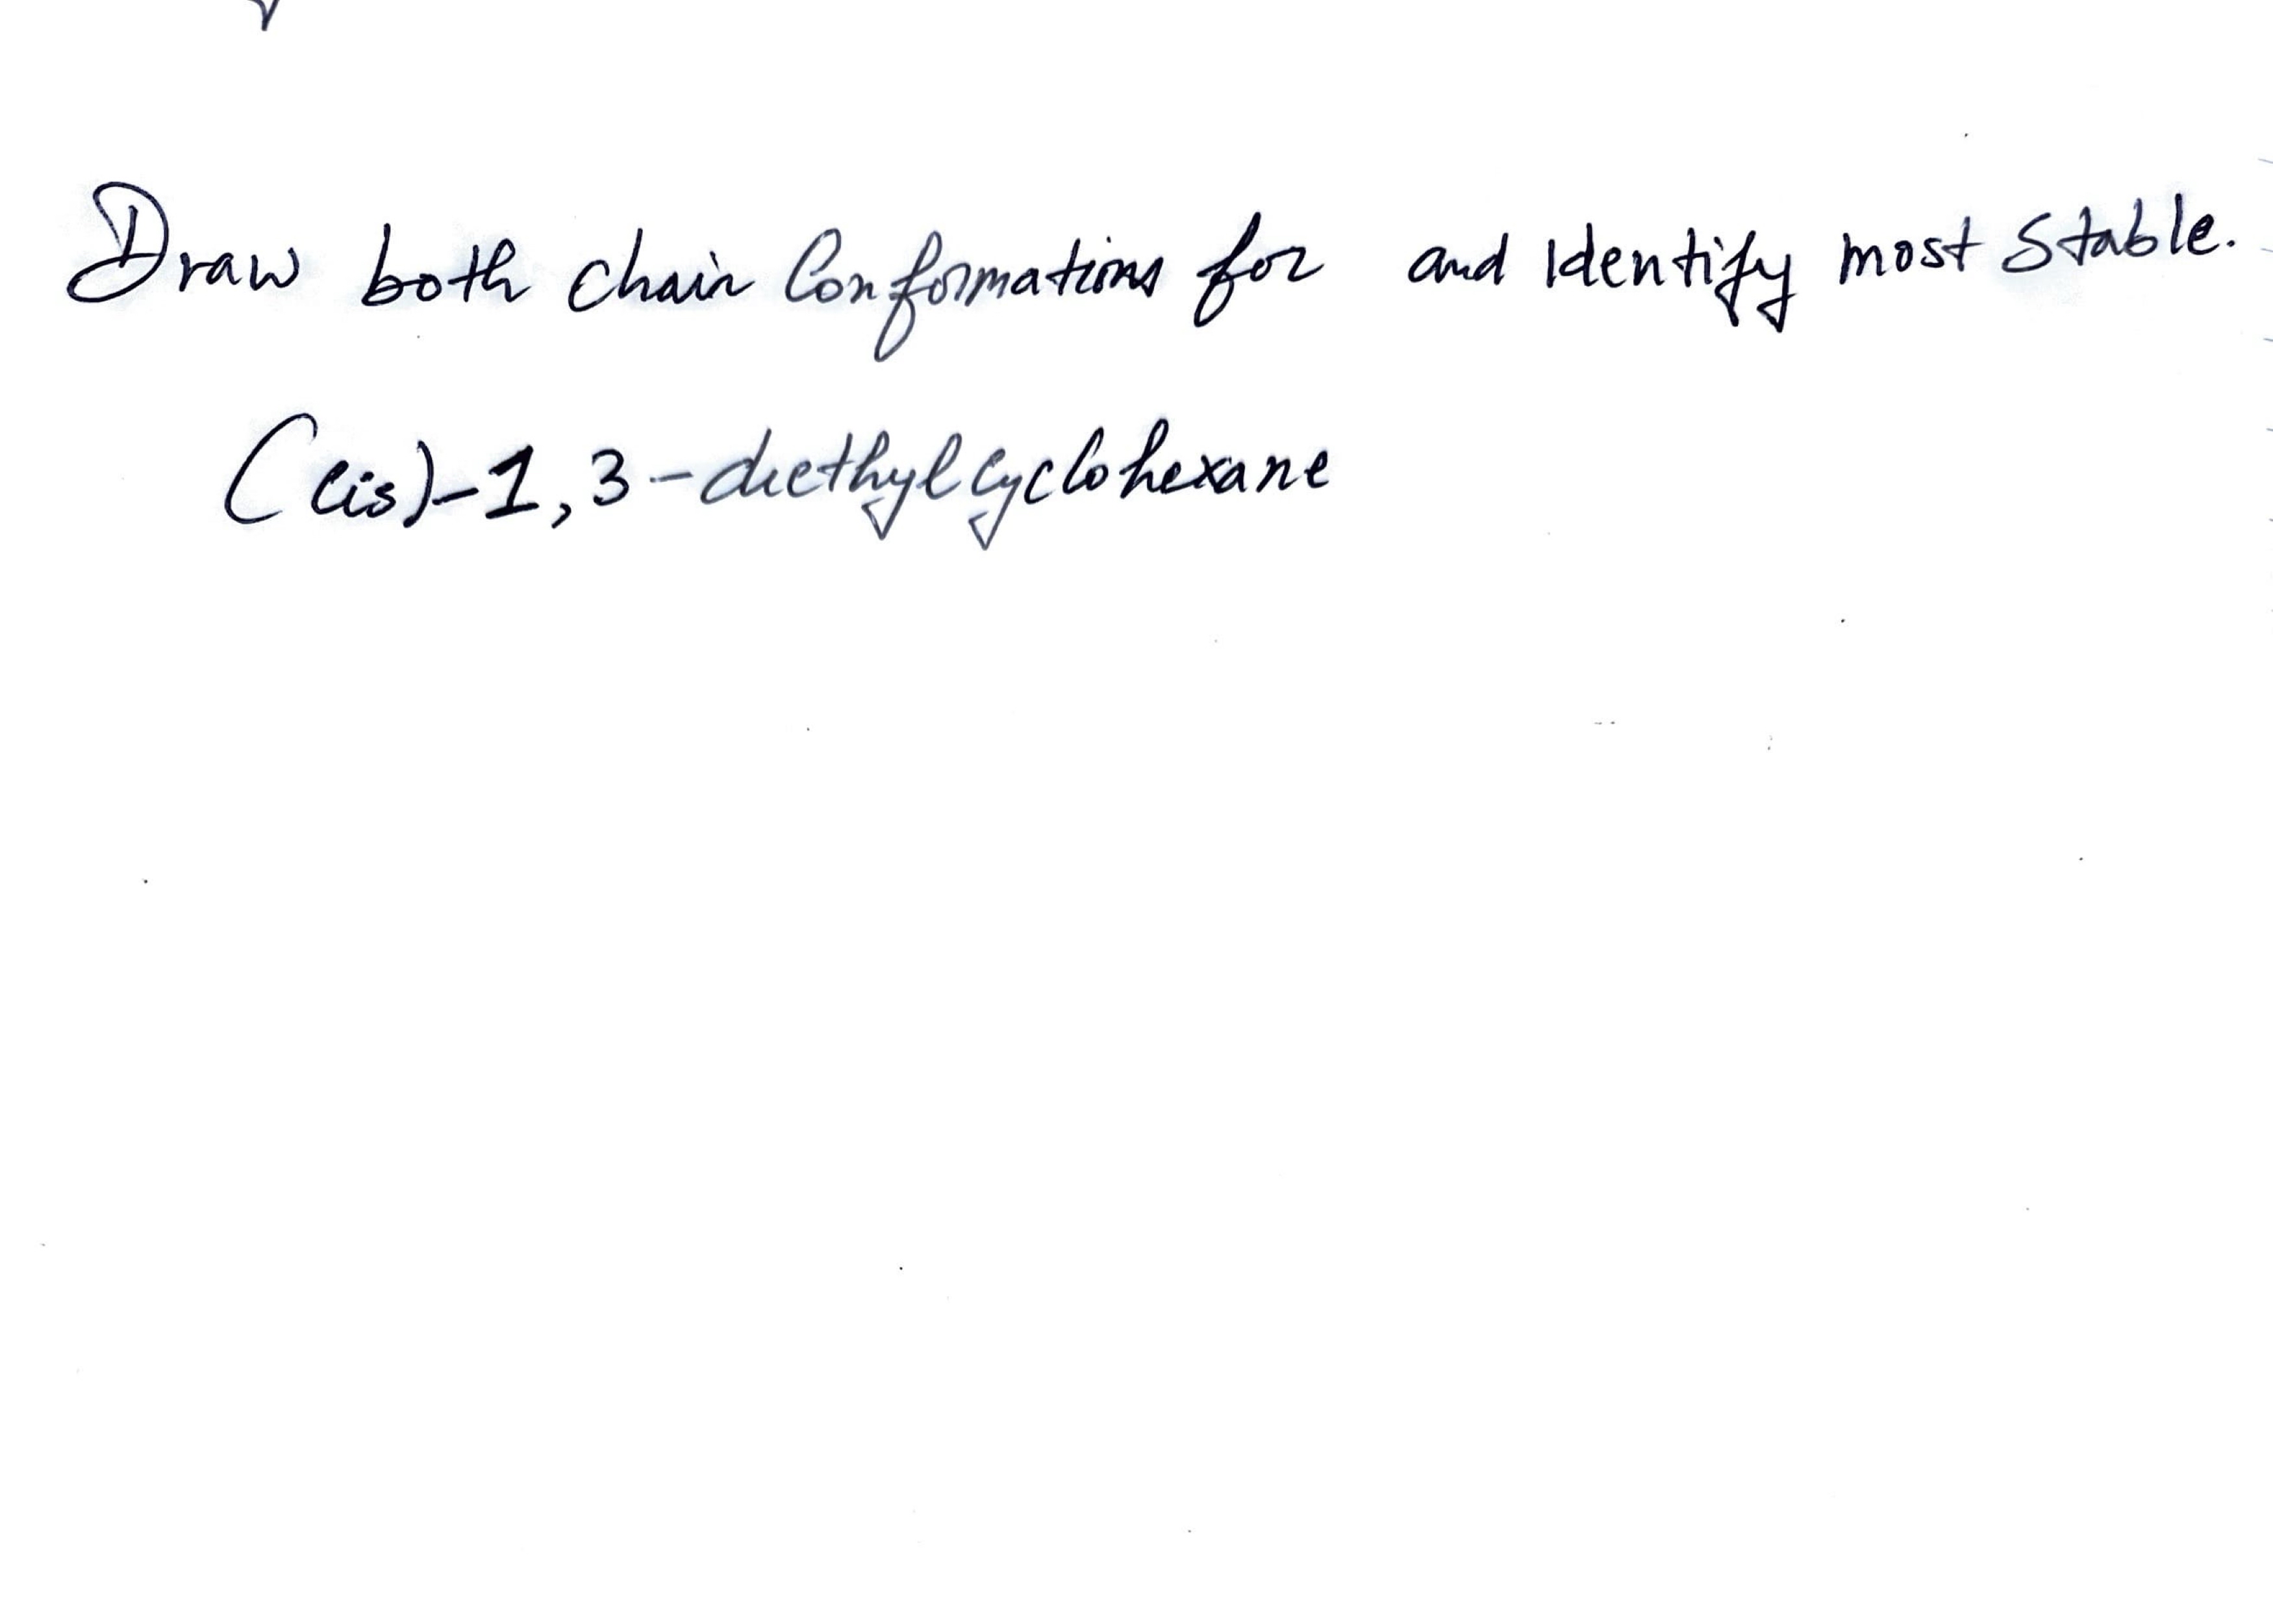 Draw both chair Conformations for and Identify most stable.
(cis)-1,3-diethylcyclohexane